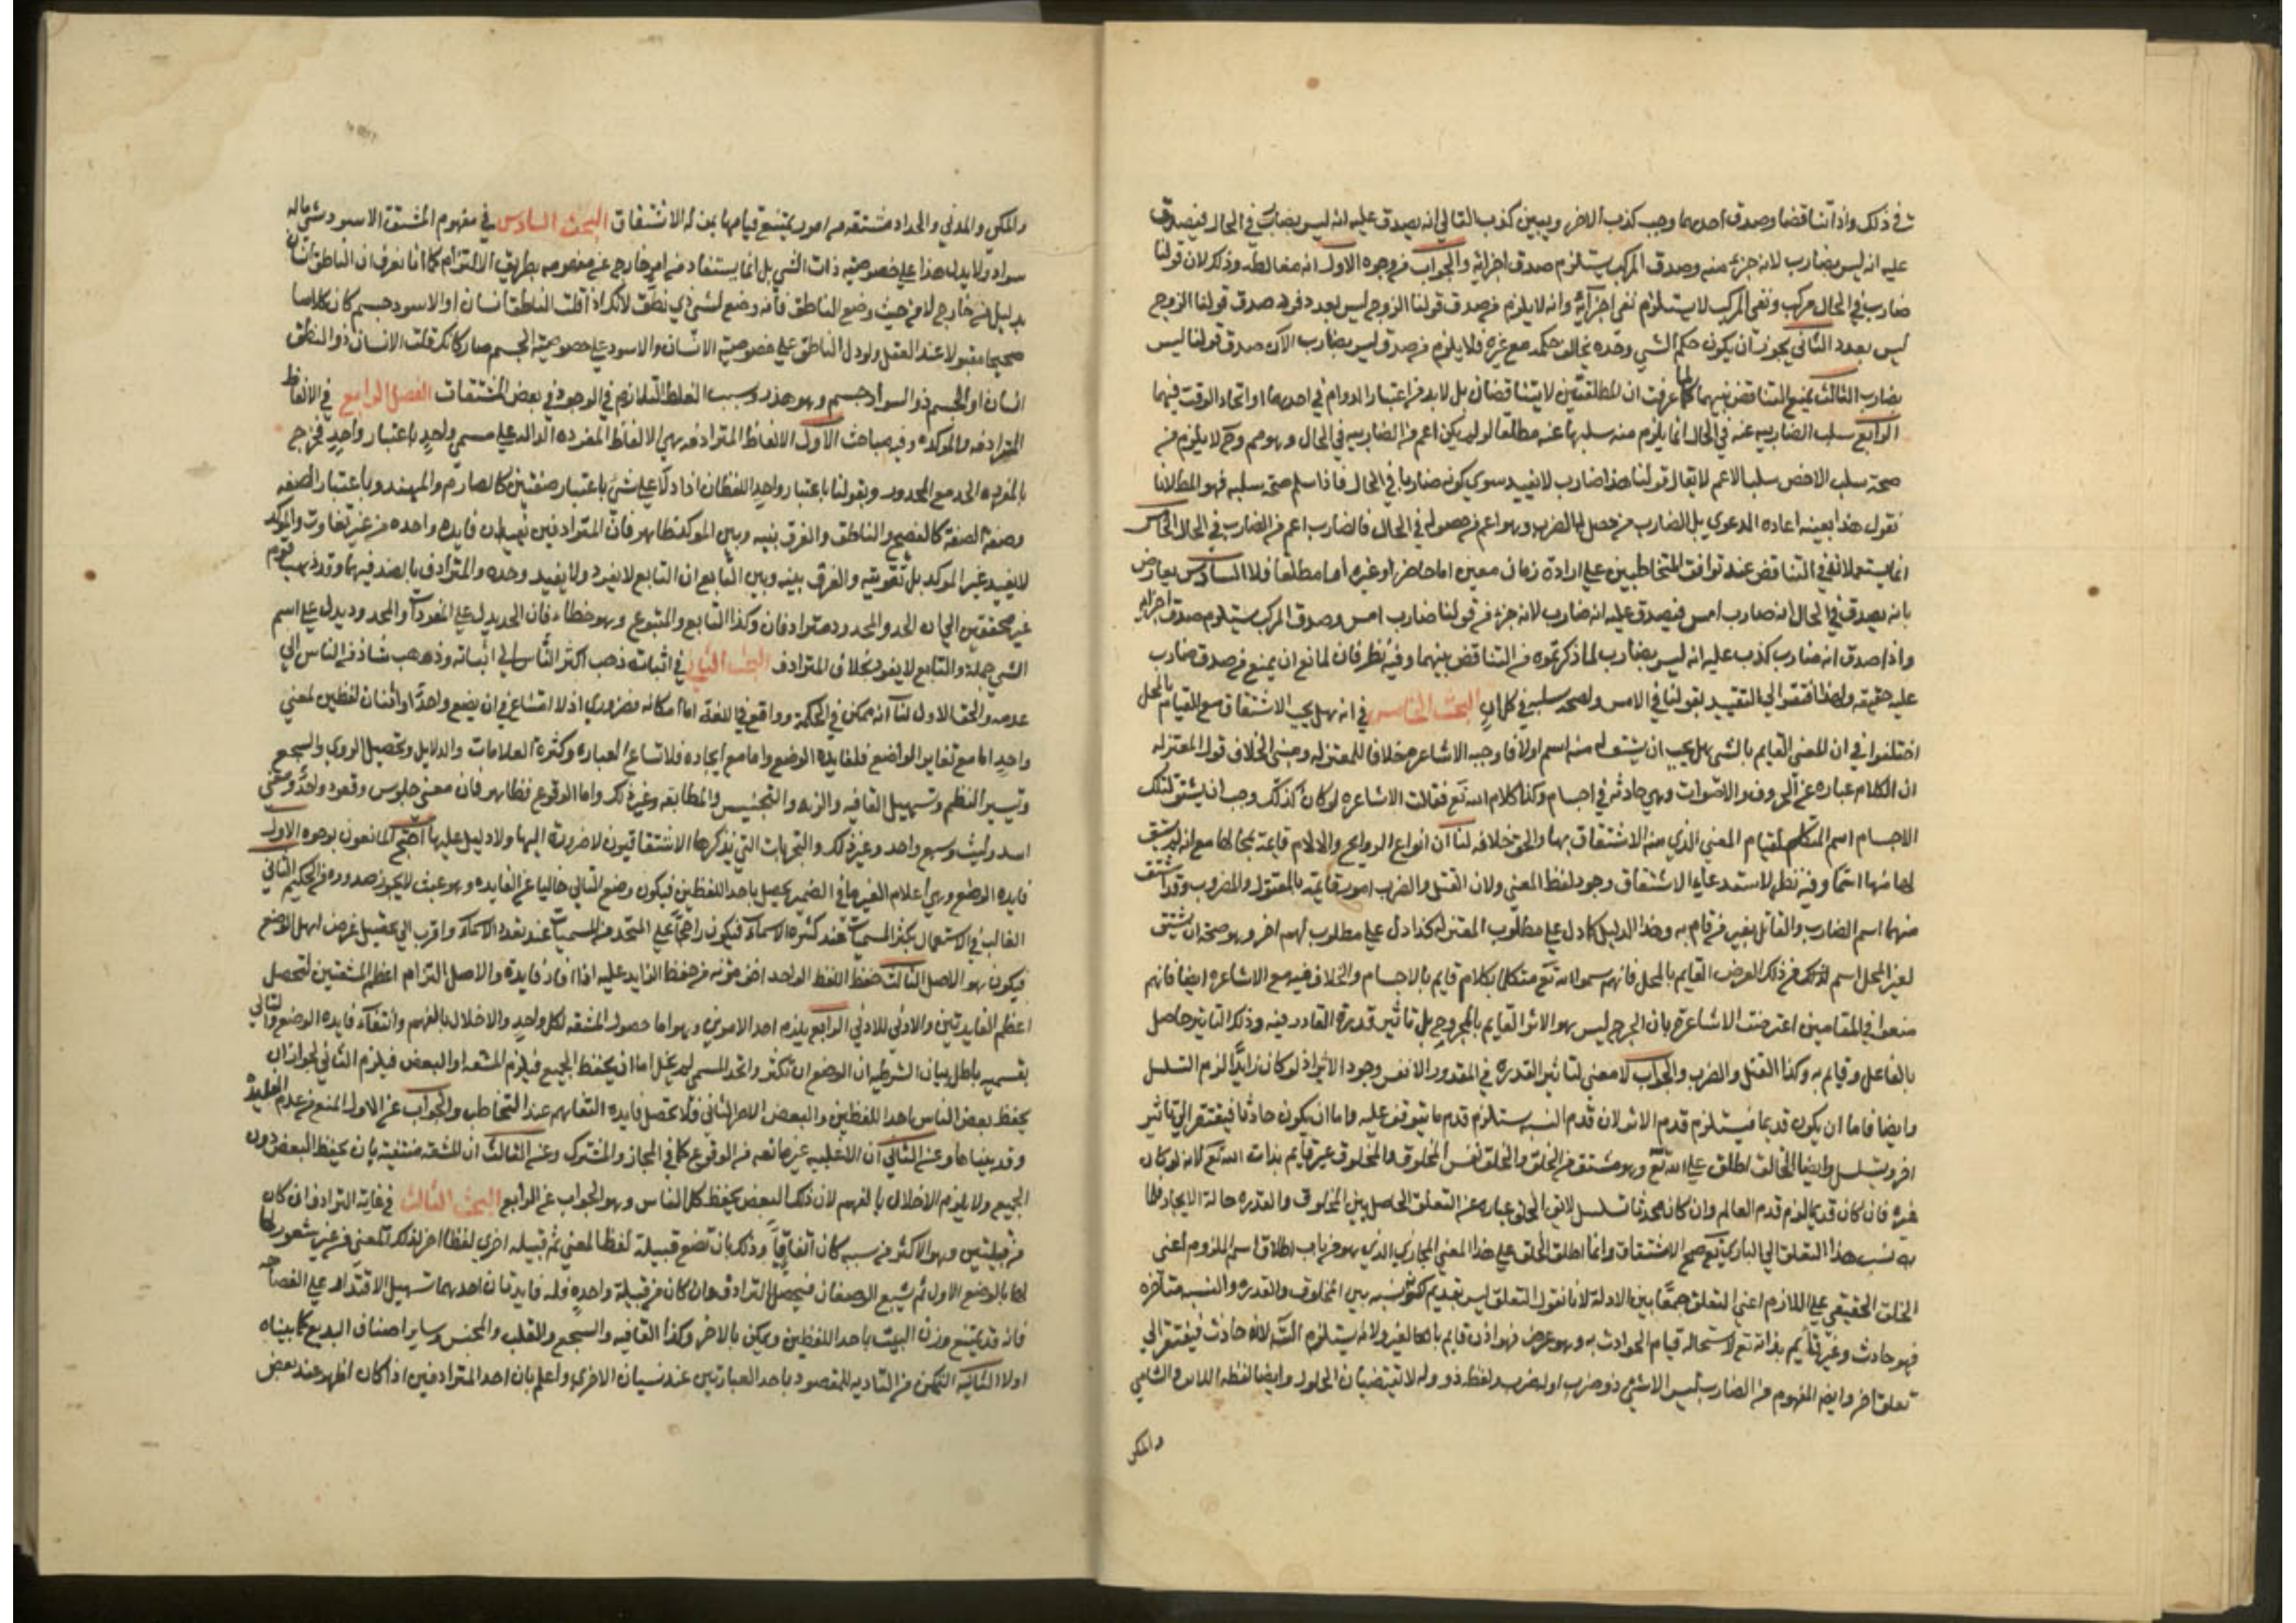 في ذلك واذا تناقضا وصدق احدهما وجب كذب الاخر ويبين كذب التالي انه يصدق عليه انه ليس بضارب في الحال فيصدق
عليه انه ليس بضارب لانه جزء منه وصدق المركب يستلزم صدق اجزائه والجواب من وجوه الاول انه مغالطه وذلك لان قولنا
ضارب في الحال مركب ونفى المركب لا يستلزم نفى اجزائه وانه لا يلزم من صدق قولنا الزوج ليس بعدد فرد صدق قولنا الزوج
ليس بعدد الثاني يجوز ان يكون حكم الشي وحده يخالف حكمه مع غيره فلا يلزم من صدق ليس بضارب الآن صدق قولنا ليس
بضارب الثالث يمنع التناقض بينهما لما عرفت ان المطلقتين لا يتناقضان بل لا بد من اعتبار الدوام في احدهما او اتحاد الوقت فيهما
الرابع سلب الضاربيه عنه في الحال انما يلزم منه سلبها عنه مطلقا لو لم يكن اعم من الضاربيه في الحال وهو مم وح لا يلزم من
صحة سلب الاخص سلب الاعم لا يقال قولنا هذا ضارب لا يفيد سوى كونه ضاربا في الحال فاذا سلم صحة سلبه فهو المط لانا
نقول هذا بعينه اعاده الدعوي بل الضارب من حصل له الضرب وهو اعم من حصوله في الحال فالضارب اعم من الضارب في الحال الخامس
انما يستعملان في التناقض عند توافق المتخاطبين على ارادة زمان معين اما حاضر او غيره أما مطلقا فلا السادس يعارض
بانه يصدق في الحال انه ضارب امس فيصدق عليه انه ضارب لانه جزء من قولنا ضارب امس وصدق المركب يستلزم صدق اجزائه
واذا صدق انه ضارب كذب عليه انه ليس بضارب لما ذكرتموه من التناقض بينهما وفيه نظر فان لمانع ان يمنع من صدق ضارب
عليه حقيقه ولهذا افتقر الى التقييد بقولنا في الامس ولصحه سلبه في كل آن البحث الخامس في انه هل يجب الاشتقاق مع القيام بالمحل
اختلفوا في ان المعنى القايم بالشي هل يجب ان يشتق له منه اسم اولا فاوجبه الاشاعره خلافا للمعتزله ومبنى الخلاف قول المعتزله
ان الكلام عباره عن الحروف والاصوات وهي حادثه في اجسام وكذا كلام الله تع فقالت الاشاعره لو كان كذلك وجب ان يشتق لتلك
الاجسام اسم المتكلم لقيام المعنى الذي منه الاشتقاق بها والحق خلافه لنا ان انواع الروايح والالام قايمة بمحالها مع انه لم يشتق
لها منها اسما وفيه نظر لاستدعاء الاشتقاق وجود لفظ المعنى ولان القتل والضرب امور قايمة بالمقتول والمضروب وقد اشتق
منهما اسم الضارب والقاتل بغير من قام به وهذا الدليل كما دل على مطلوب المعتزله كذا دل على مطلوب لهم اخر وهو صحة ان يشتق
لغير المحل اسم لذلك من ذلك العرض القايم بالمحل فانهم سموا الله تع متكلما بكلام قايم بالاجسام والخلاف فيه مع الاشاعره ايضا فانهم
منعوا في المقامين اعترضت الاشاعرة بان الجرح ليس هو الاثر القايم بالمجروح بل تاثير قدرة القادر فيه وذلك التاثير حاصل
بالفاعل وقايم به وكذا القتل والضرب والجواب لا معنى لتاثير القدره في المقدور الا نفس وجود الاثر اذ لو كان زايدا لزم التسلسل
وايضا فاما ان يكون قديما فيستلزم قدم الاثر لان قدم النسبه يستلزم قدم ما يتوقف عليه واما ان يكون حادثا فيفتقر الى تاثير
اخر ويتسلسل وايضا الخالق اطلق على الله تع وهو مشتق من الخلق والخلق نفس المخلوق والمخلوق غير قايم بذات الله تع لانه لو كان
غيره فان كان قديما لزم قدم العالم وان كان محدثا تسلسل لا يق الخلق عباره عن التعلق الحاصل بين المخلوق والقدره حالة الايجاد فلما
نسب هذا التعلق الى الباري تع صح الاشتقاق وانما اطلق الخلق على هذا المعنى المجازي الذي هو من باب اطلاق اسم الملزوم اعنى
الخلق الحقيقي على اللازم اعنى التعلق جمعا بين الادلة لانا نقول التعلق ليس بقديم لكونه نسبه بين المخلوق والقدره والنسبه متاخره
فهو حادث وغير قايم بذاته تع لاستحاله قيام الحوادث به وهو عرض فهو اذن قايم بالغير ولانه يستلزم التس لانه حادث فيفتقر الى
تعلق اخر وايضا المفهوم من الضارب ليس الا شي ذو ضرب او له ضرب ولفظه ذو وله لا تقتضيان الحلول وايضا لفظه اللابن والتامر
والمكى
والمكي والمدني والحداد مشتقه من امور يمتنع قيامها بمن له الاشتقاق البحث السادس في مفهوم المشتق الاسود شي ماله
سواد ولا يدل هذا على خصوصيته ذات الشي بل انما يستفاد من امر خارج عن مفهومه بطريق الالتزام كما انا نعرف ان الناطق انسان
بدليل من خارج لا من حيث وضع الناطق فانه وضع لشي ذي نطق لانك اذا قلت الناطق انسان او الاسود جسم كان كلاما
صحيحا مقبولا عند العقل ولو دل الناطق على خصوصية الانسان والاسود على خصوصية الجسم صار كانك قلت الانسان ذو النطق
انسان او الجسم ذو السواد جسم وهو هذر وسبب الغلط التلازم في الوجود في بعض المشتقات الفصل الرابع في الالفاظ
المترادفه والموكده وفيه مباحث الأول الالفاظ المترادفه هي الالفاظ المفرده الدالة على مسمى واحد باعتبار واحد فخرج
بالمفرده الحد مع المحدود وبقولنا باعتبار واحد اللفظان اذا دلا على شي باعتبار صفتين كالصارم والمهند وباعتبار الصفه
وصفة الصفة كالفصيح والناطق والفرق بينه وبين الموكد ظاهر فان المترادفين يفيدان فايده واحده من غير تفاوت والموكد
لا يفيد غير الموكد بل تقويته والفرق بينه وبين التابع ان التابع لا يفرد ولا يفيد وحده والمترادف بالضد فيهما وقد ذهب قوم
غير محققين الى ان الحد والمحدود مترادفان وكذا التابع والمتبوع وهو خطاء فان الحد يدل على المفردات والمحدود يدل على اسم
الشي جملة والتابع لا يفرد بخلاف المترادف البحث الثاني في اثباته ذهب اكثر الناس الى اثباته وذهب شاذ من الناس الى
عدمه والحق الاول لنا انه ممكن في الحكمة وواقع في اللغة اما امكانه فضروري اذ لا امتناع في ان يضع واحدا او اثنان لفظين لمعنى
واحد اما مع تغاير الواضع فلفايدة الوضع واما مع ايجاده فلاتساع العباره وكثرة العلامات والدلايل وتحصيل الروي والسجع
وتيسير النظم وتسهيل القافيه والزنه والتجنيس والمطابقه وغير ذلك واما الوقوع فظاهر فان معنى جلوس وقعود واحد ومعنى
اسد وليث وسبع واحد وغير ذلك والتخريجات التي يذكرها الاشتقاقيون لا ضرورة اليها ولا دليل عليها احتج المانعون بوجوه الاول
فايده الوضع وهي اعلام الغير ما في الضمير يحصل باحد اللفظين فيكون وضع الثاني خاليا عن الفايده وهو عبث لا يجوز صدوره من الحكيم الثاني
الغالب في الاستعمال عند كثرة الاسماء فيكون راجحا على المتحد من المسميات عند تعدد الاسماء واقرب الى تحصيل غرض اهل الوضع
فيكون هو الاصل الثالث حفظ اللفظ الواحد اخف مؤنه من حفظ الزايد عليه اذا افاد فايدة والاصل التزام اعظم المشقتين لتحصل
اعظم الفايدتين والادنى للادنى الرابع يلزم احد الامرين وهو اما حصول المشقه لكل واحد والاخلال بالفهم وانتفاء فايده الوضع والتالي
بقسميه باطل بيان الشرطيه ان الوضع ان تكثر واتحد المسمى لم يخل اما ان يحفظ الجميع فيلزم المشقه او البعض فيلزم الثاني لجواز ان
يحفظ بعض الناس احد اللفظين والبعض الاخر الثاني فلا تحصل فايده التفاهم عند التخاطب والجواب عن الاول المنع من عدم الفايده
وقد بيناها وعن الثاني ان الاغلبيه غير مانعه من الوقوع كما في المجاز والمشترك وعن الثالث ان المشقه منتفية بان يحفظ البعض دون
الجميع ولا يلزم الاخلال بالفهم لان ذلك البعض يحفظ كل الناس وهو الجواب عن الرابع البحث الثالث في غاية الترادف ان كان
من قبيلتين وهو الاكثر من سببه كان اتفاقيا وذلك بان تضع قبيلة لفظا لمعنى ثم قبيله اخرى لفظا اخر لذلك المعنى من غير شعور لها
لها بالوضع الاول ثم يشيع الوضعان فيحصل الترادف وان كان من قبيلة واحده فله فايدتان احديهما تسهيل الاقتدار على الفصاحه
فانه قد يمتنع وزن البيت باحد اللفظين ويمكن بالاخر وكذا القافيه والسجع والقلب والمجنس وساير اصناف البديع كما بيناه
اولا الثانية التمكن من التاديه للمقصود باحد العبارتين عند نسيان الاخرى واعلم بان احد المترادفين اذا كان اظهر عند بعض